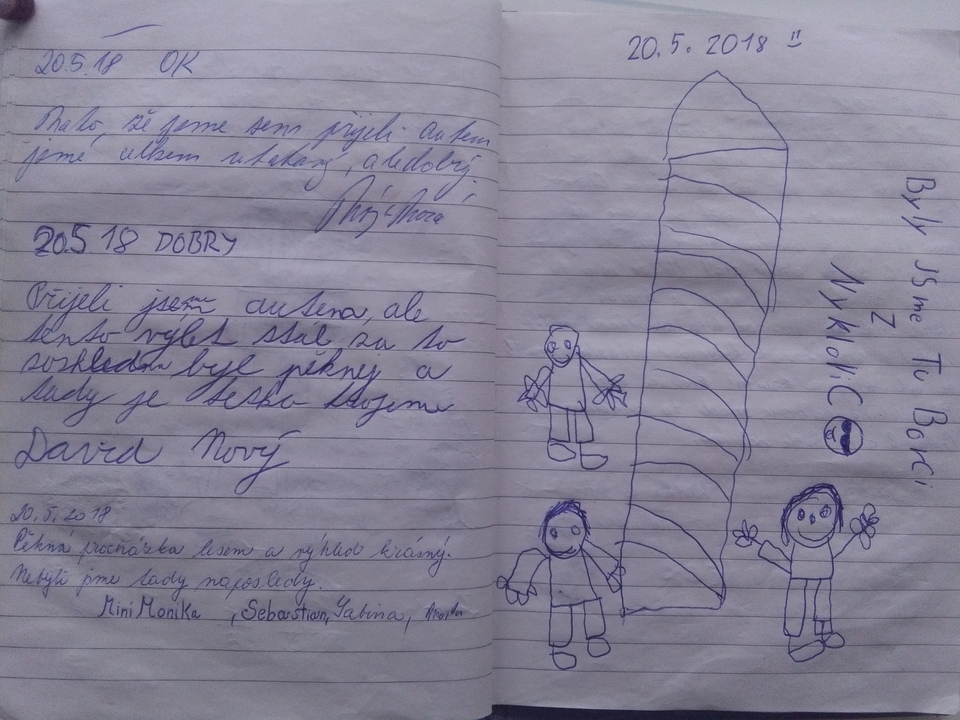 20.5.18 OK
že jsme sem přijeli autem
jsme celkem, ale dobrý.
20.5 18 DOBRY
Přijeli jsem autem, ale
tento výlet stál za to
rozhledm byl pěknej a
tady je
David Nový
20.5.2018
Pěkná procházka lesem a výhled krásný.
Nebyli jsme tady naposledy.
Mini Monika , Sebastian, Sabina,
20. 5. 2018
Byly Jsme Tu Borci
Z
Nyklovic